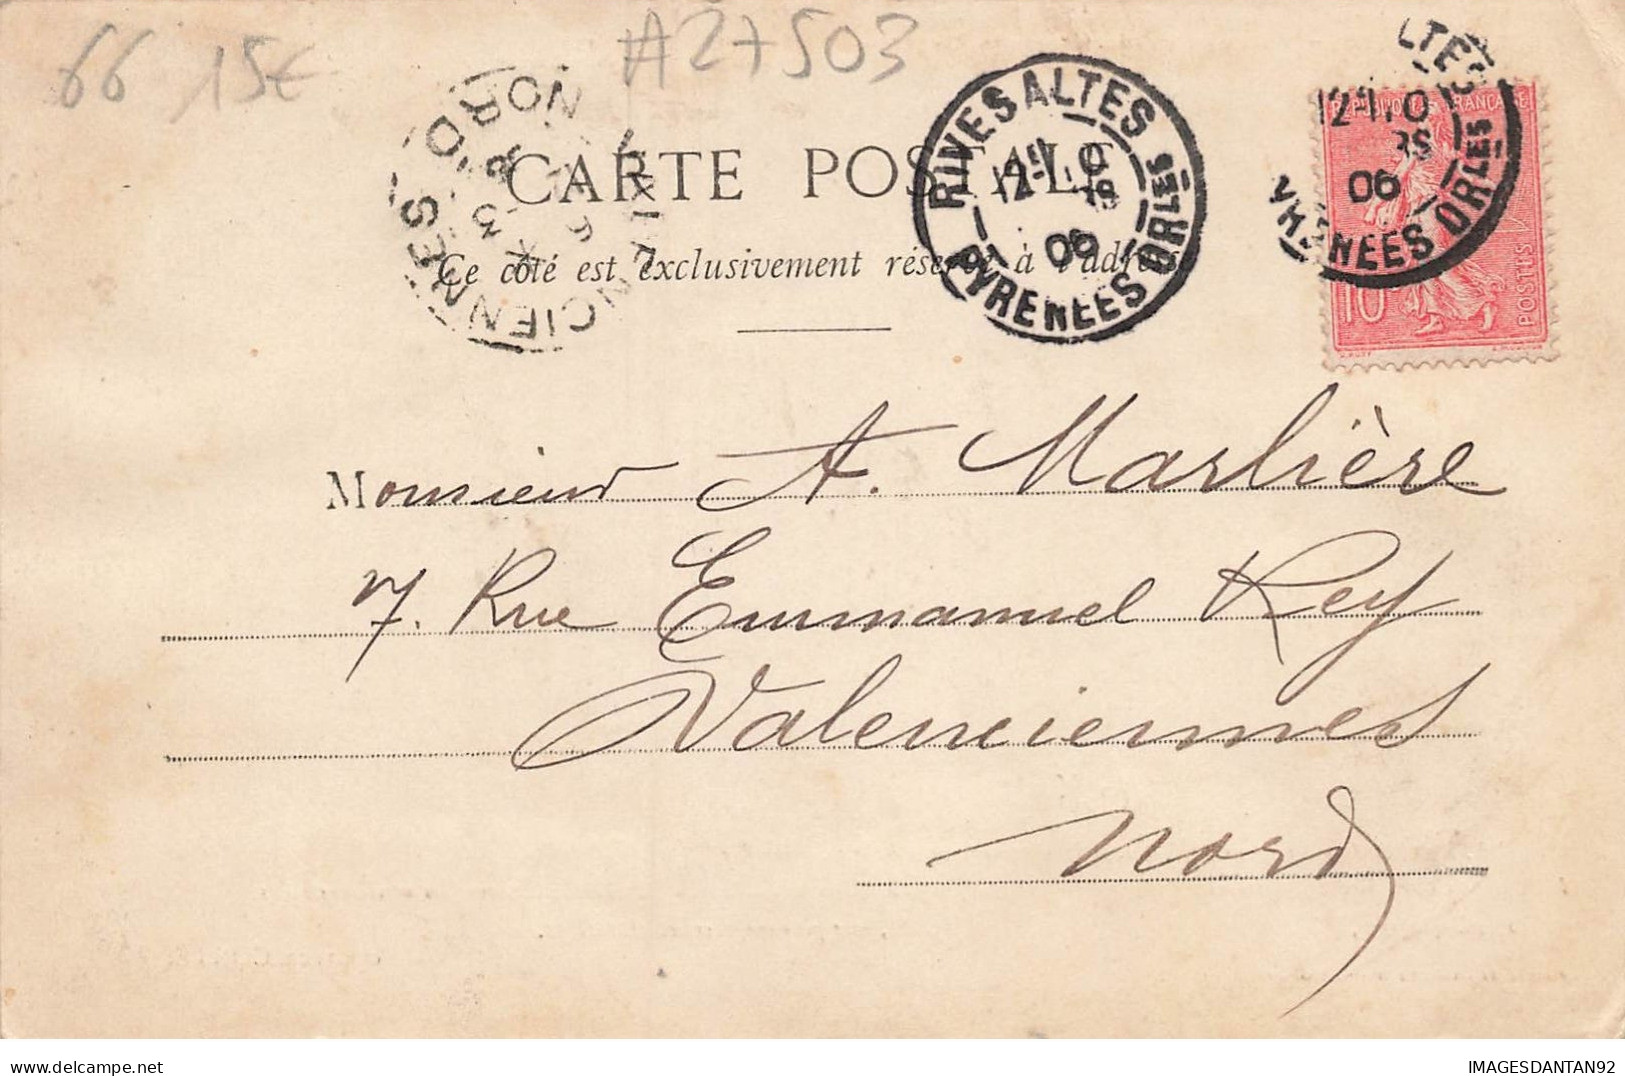 66 15€
A27503
CARTE POSTALE
Ce côté est exclusivement réservé à l'adresse
RIVESALTES
12-
06
PYRENEES ORLES
VALENCIENNES
NORD
RÉPUBLIQUE FRANÇAISE
POSTES
10
06
Monsieur A. Marlière
7. Rue Emmanuel Rey
Valenciennes
Nord
IMAGESDANTAN92